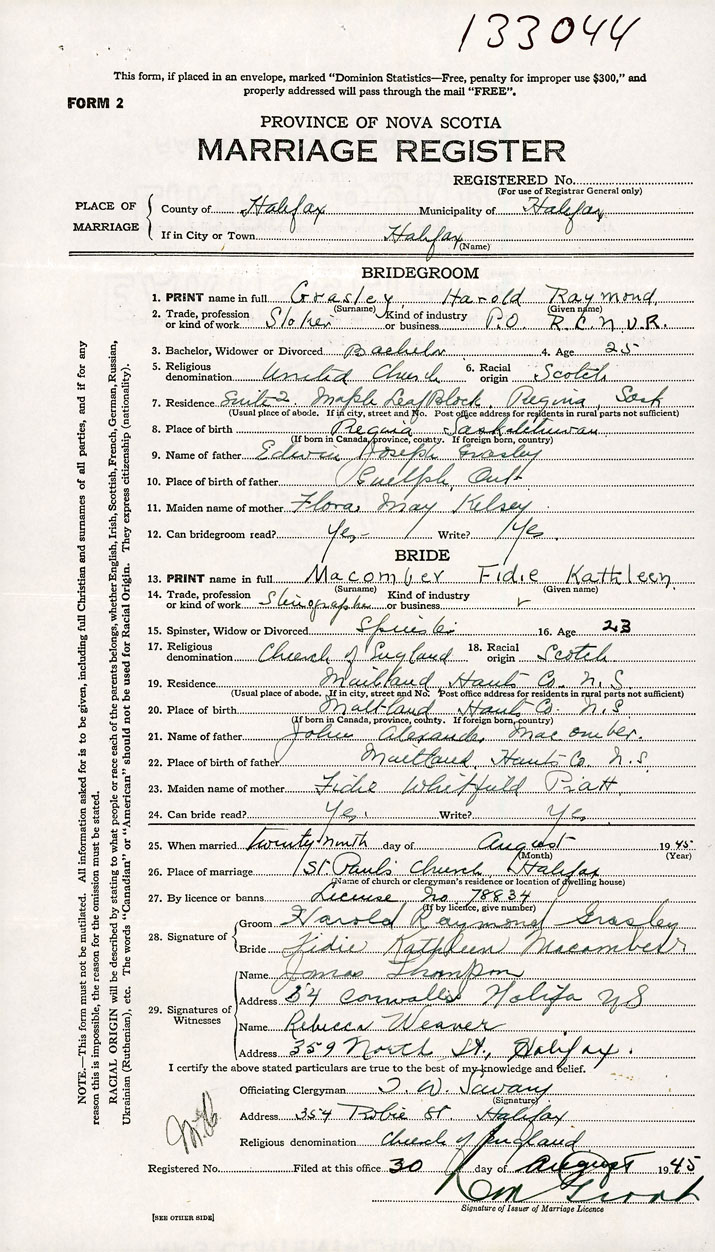 133044
This form, if placed in an envelope, marked "Dominion Statistics—Free, penalty for improper use $300," and
properly addressed will pass through the mail "FREE".
FORM 2
PROVINCE OF NOVA SCOTIA
MARRIAGE REGISTER
REGISTERED No.
(For use of Registrar General only)
PLACE OF MARRIAGE
County of Halifax Municipality of Halifax
If in City or Town Halifax
(Name)
BRIDEGROOM
1. PRINT name in full Grasley, Harold Raymond
(Surname) (Given name)
2. Trade, profession or kind of work Stoker Kind of industry or business P.O. R.C.N.V.R.
3. Bachelor, Widower or Divorced Bachelor 4. Age 25
5. Religious denomination United Church 6. Racial origin Scotch
7. Residence Suite 2 Maple Leaf Block, Regina, Sask
(Usual place of abode. If in city, street and No. Post office address for residents in rural parts not sufficient)
8. Place of birth Regina Saskatchewan
(If born in Canada, province, county. If foreign born, country)
9. Name of father Edwin Joseph Grasley
10. Place of birth of father Guelph, Ont
11. Maiden name of mother Flora May Kelsey
12. Can bridegroom read? Yes Write? Yes
BRIDE
13. PRINT name in full Macomber Fidie Kathleen
(Surname) (Given name)
14. Trade, profession or kind of work Stenographer Kind of industry or business
15. Spinster, Widow or Divorced Spinster 16. Age 23
17. Religious denomination Church of England 18. Racial origin Scotch
19. Residence Maitland, Hants Co. N.S.
(Usual place of abode. If in city, street and No. Post office address for residents in rural parts not sufficient)
20. Place of birth Maitland Hants Co. N.S
(If born in Canada, province, county. If foreign born, country)
21. Name of father John Alexander Macomber.
22. Place of birth of father Maitland, Hants Co. N.S.
23. Maiden name of mother Fidie Pratt
24. Can bride read? Yes. Write? Yes
25. When married twenty ninth day of August 1945
(Month) (Year)
26. Place of marriage St Paul's Church, Halifax
(Name of church or clergyman's residence or location of dwelling house)
27. By licence or banns License No 78834
(If by licence, give number)
28. Signature of
Groom Harold Raymond Grasley
Bride Fidie Kathleen Macomber
29. Signatures of Witnesses
Name Thompson
Address 54 Halifax NS
Name Rebecca Weaver
Address 359 North St., Halifax.
I certify the above stated particulars are true to the best of my knowledge and belief.
Officiating Clergyman T. W. Savary
(Signature)
Address 354 Robie St. Halifax
Religious denomination Church of England
Registered No. Filed at this office 30 day of August 1945
Signature of Issuer of Marriage Licence
[SEE OTHER SIDE]
NOTE.—This form must not be mutilated. All information asked for is to be given, including full Christian and surnames of all parties, and if for any
reason this is impossible, the reason for the omission must be stated.
RACIAL ORIGIN will be described by stating to what people or race each of the parents belongs, whether English, Irish, Scottish, French, German, Russian,
Ukrainian (Ruthenian), etc. The words "Canadian" or "American" should not be used for Racial Origin. They express citizenship (nationality).